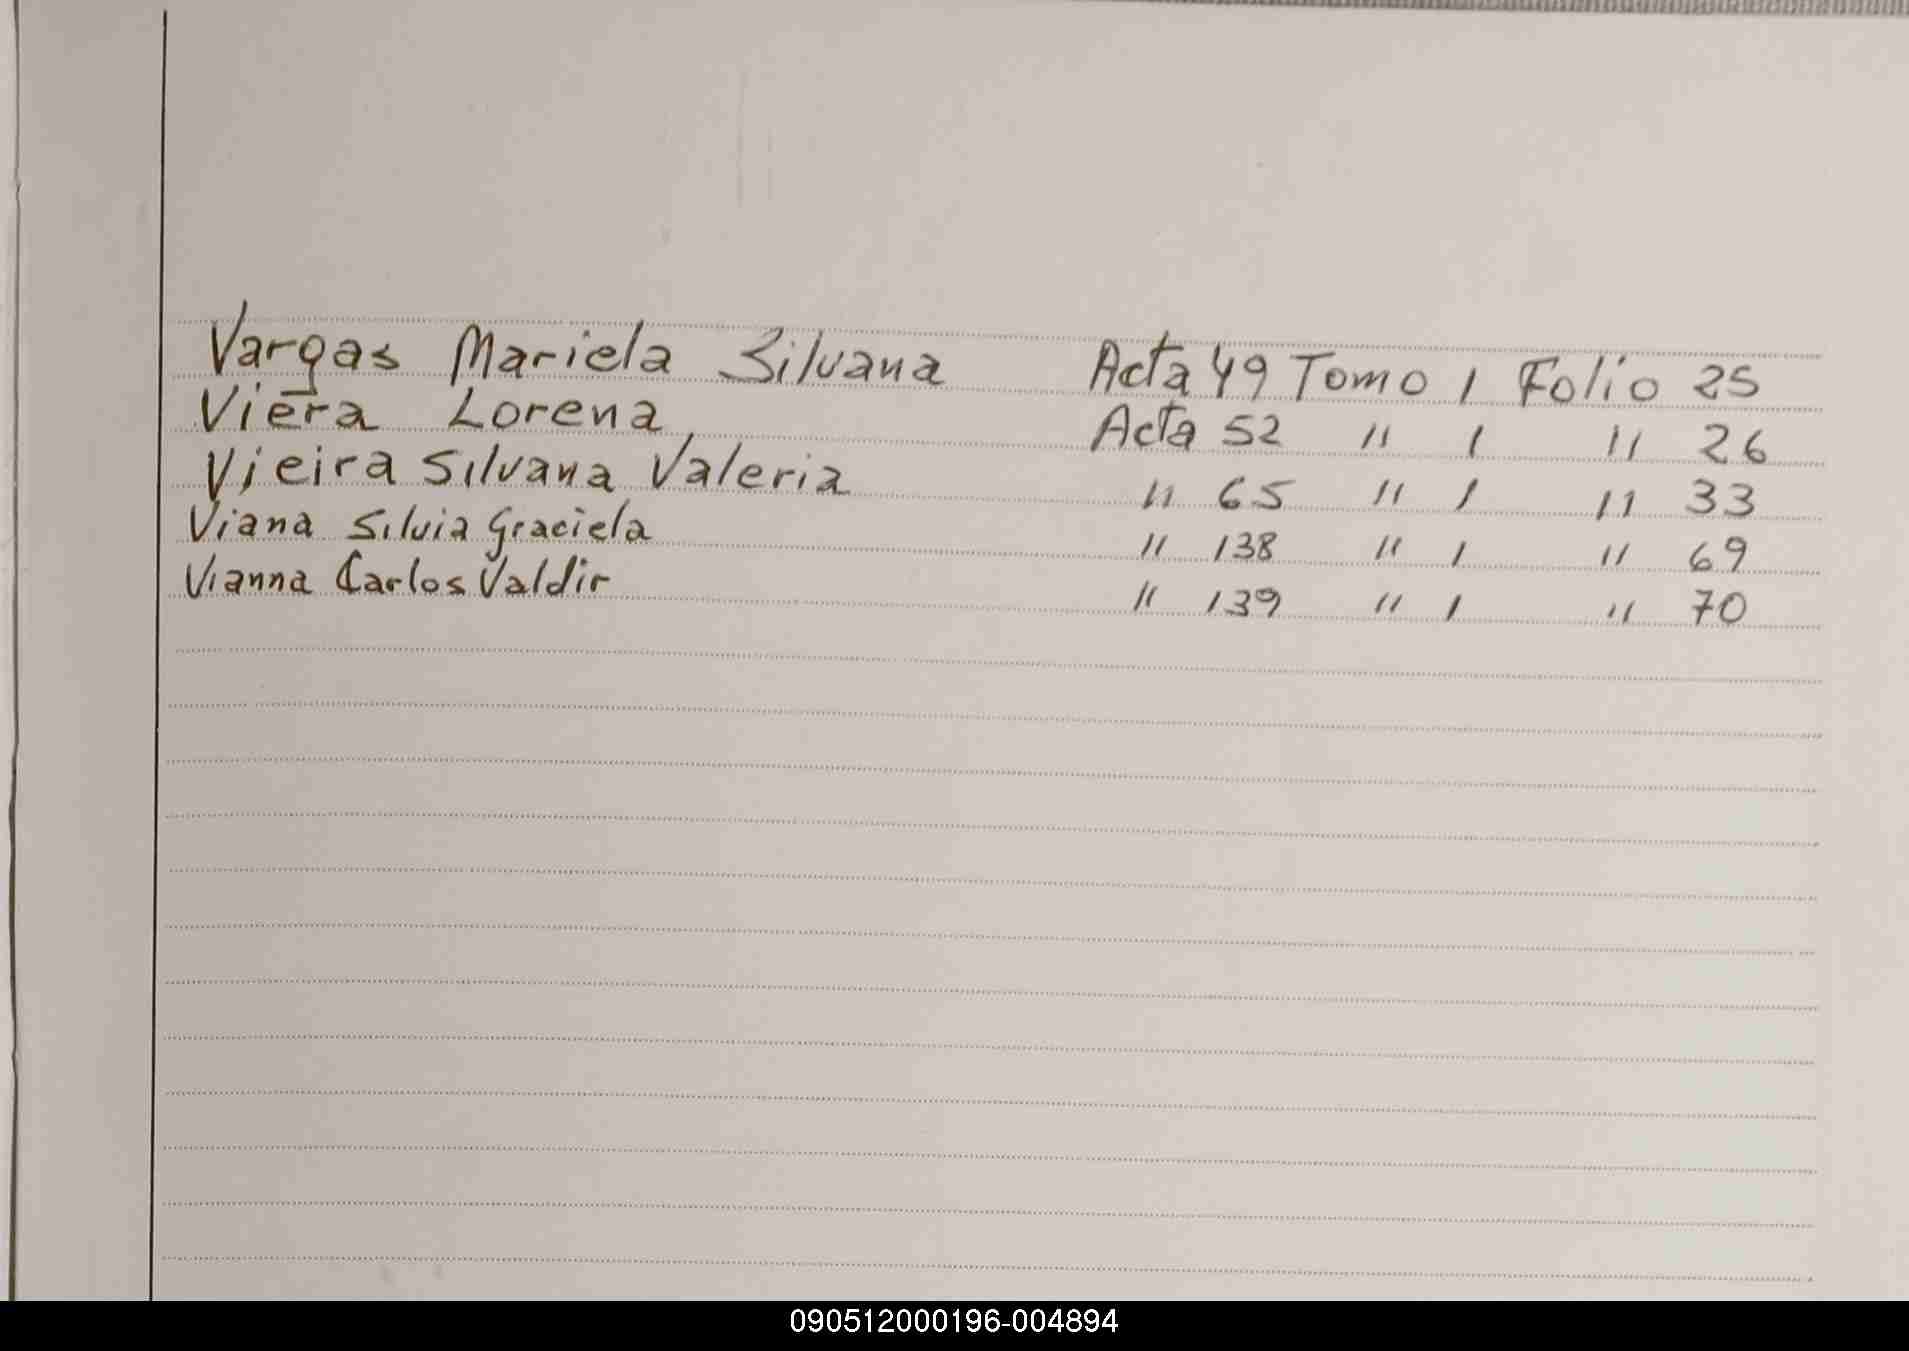 Vargas Mariela Silvana Acta 49 Tomo 1 Folio 25
Viera Lorena Acta 52 " 1 " 26
Vieira Silvana Valeria " 65 " 1 " 33
Viana Silvia Graciela " 138 " 1 " 69
Vianna Carlos Valdir " 139 " 1 " 70
090512000196-004894